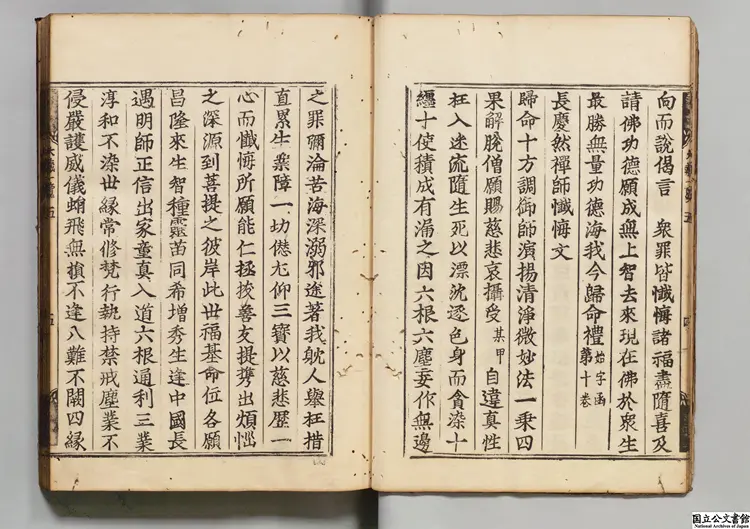 向而說偈言　衆罪皆懺悔諸福盡隨喜及
請佛功德願成無上智去來現在佛於衆生
最勝無量功德海我今歸命禮 始字函第十卷
長慶然禪師懺悔文
歸命十方調御師演揚清淨微妙法一乗四
果解脫僧願賜慈悲哀攝受 某甲 自違真性
枉入迷流隨生死以漂沈逐色身而貪染十
纒十使積成有漏之因六根六塵妄作無邊
之罪彌淪苦海深溺邪途著我躭人舉枉措
直累生業障一切僁尤仰三寶以慈悲歷一
心而懺悔所願能仁拯拔善友提携出煩惱
之深源到菩提之彼岸此世福基命位各願
昌隆來生智種靈苗同希增秀生逢中國長
遇明師正信出家童真入道六根通利三業
淳和不染世緣常修梵行執持禁戒塵業不
侵嚴護威儀蜎飛無損不逢八難不闕四緣
国立公文書館
National Archives of Japan